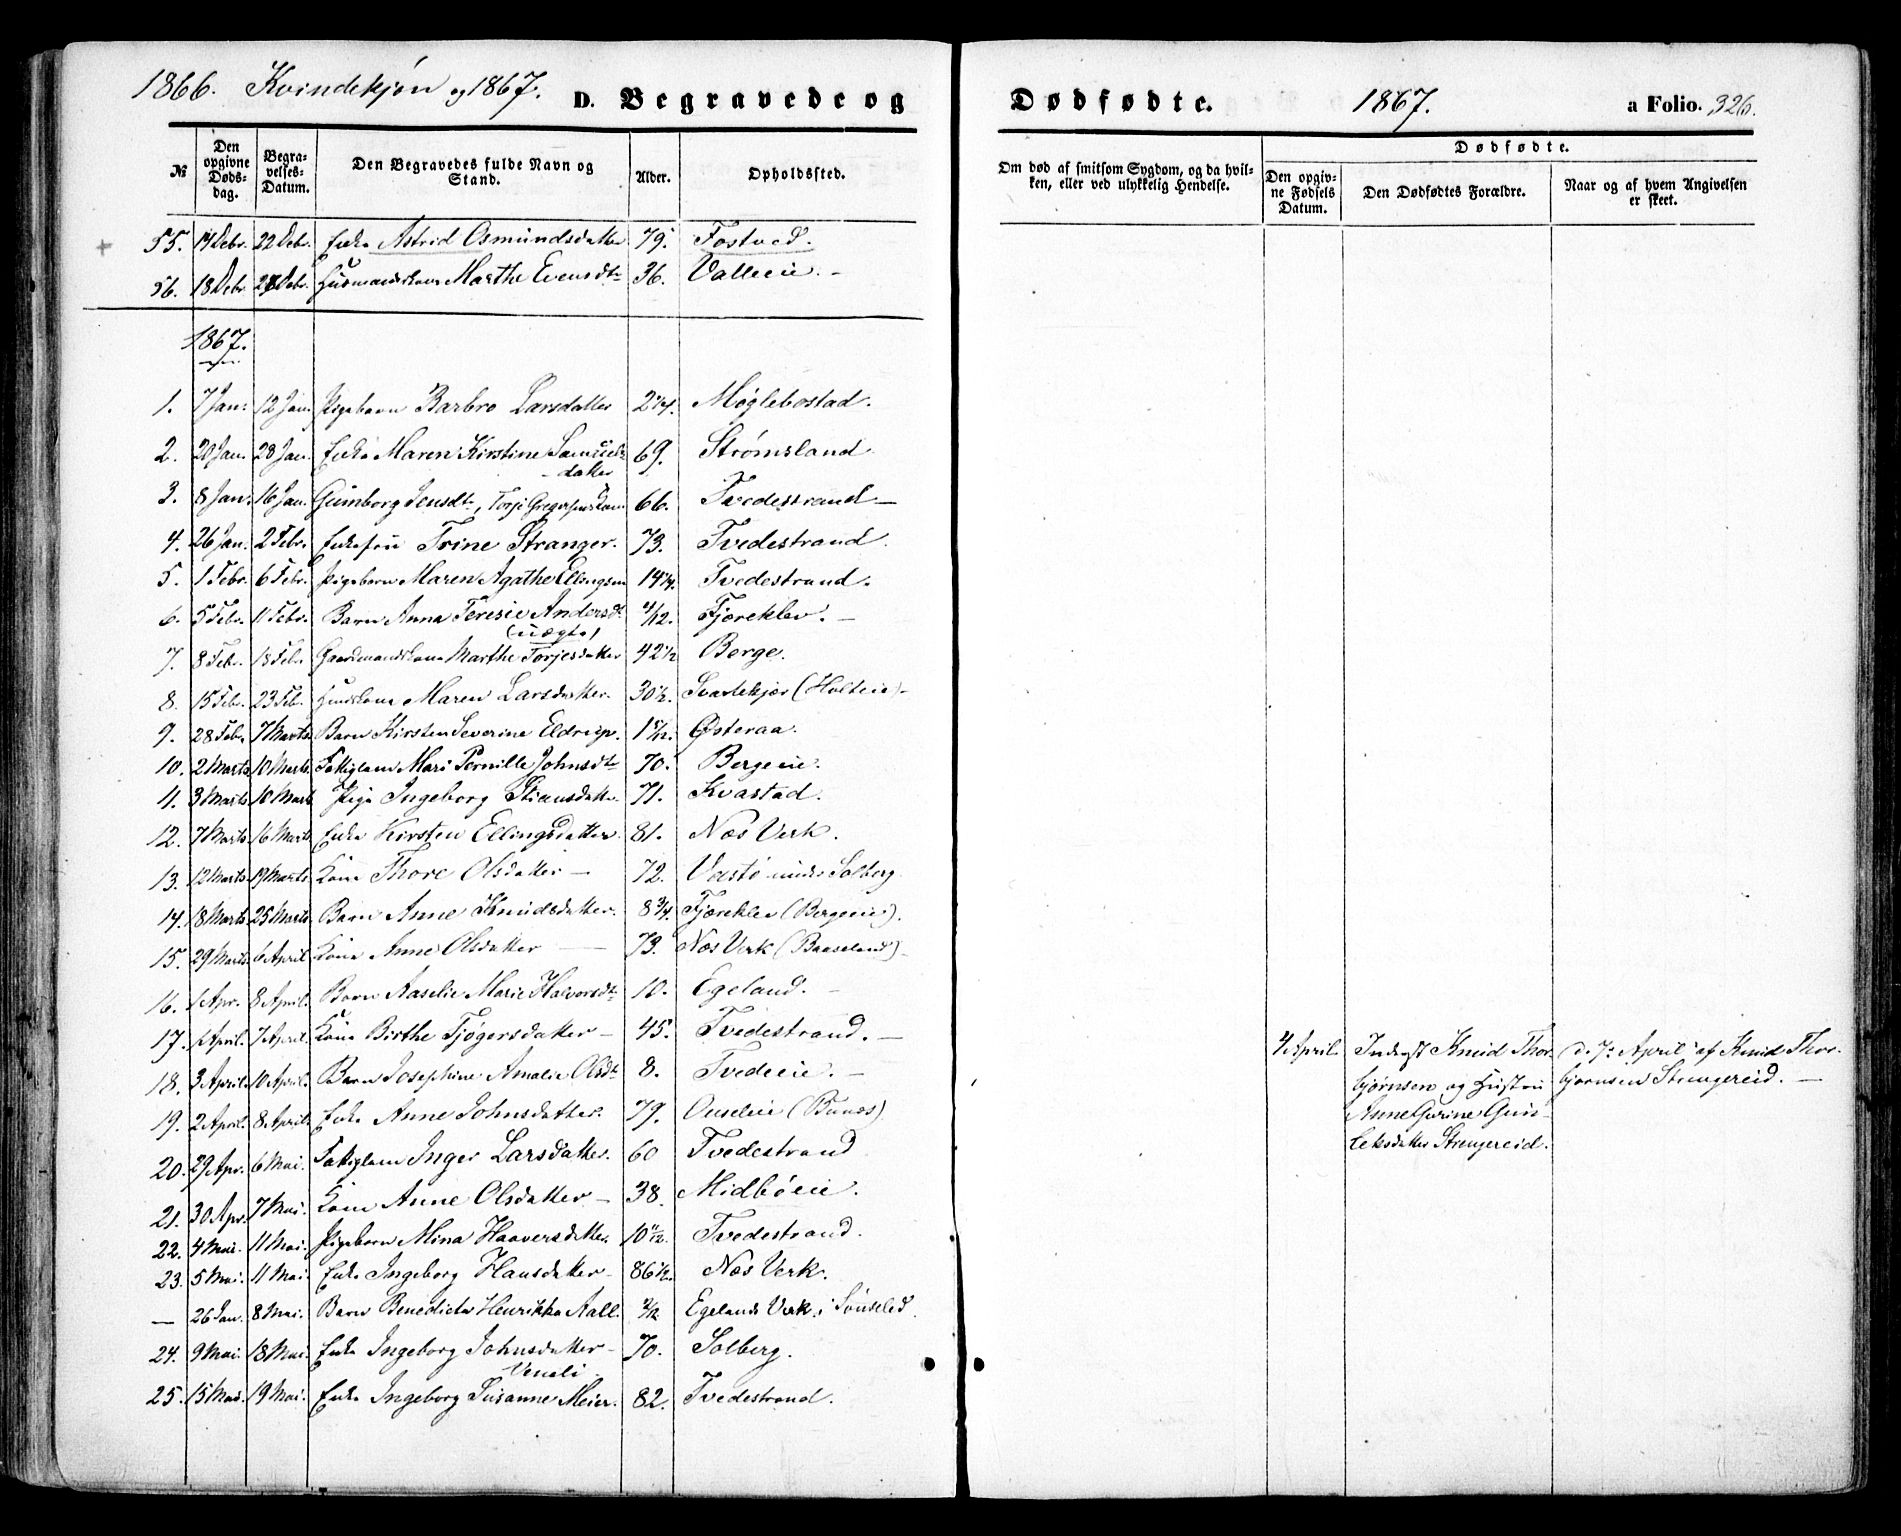 1866. Kvindekjøn og 1867. D. Begravede og Dødfødte. 1867. a Folio. 326.
№ Den opgivne Dødsdag. Begravelses-Datum. Den Begravedes fulde Navn og Stand. Alder. Opholdssted. Om død af smitsom Sygdom, og da hvilken, eller ved ulykkelig Hendelse. Dødfødte. Den opgivne Fødsels Datum. Den Dødfødtes Forældre. Naar og af hvem Angivelsen er skeet.
55. 14 Debr. 22 Debr. Enke Astrid Osmundsdatter 79. Fostved.
56. 18 Debr. 27 Debr. Husmandskone Marthe Evensdtr 36. Valleeie. -
1867.
1. 7 Jan: 12 Jan. Pigebarn Barbro Larsdatter 2 1/4. Møglebostad.
2. 20 Jan. 28 Jan. Enke Maren Kirstine Samuels-
datter 69. Strømsland
3. 8 Jan. 16 Jan. Gunborg Jensdtr, Torje Gregersens Kone 66. Tvedestrand -
4. 26 Jan. 2 Febr. Enkefru Trine Stranger. 73. Tvedestrand.
5. 1 Febr. 6 Febr. Pigebarn Maren Agathe Ellingsen 14 1/4. Tvedestrand.
6. 5 Febr. 11 Febr. Barn Anna Teresie Andersdt. 4/12. Fjæreklev. -
(uægte)
7. 8 Feb. 18 Feb. Gaardmandskone Marthe Torjesdatter 42 1/2 Berge.
8. 15 Feb. 23 Feb. Huuskone Maren Larsdatter. 30 1/2. Svartekjær (Holteie) -
9. 28 Feb. 7 Marts. Barn Kirsten Severine Eldrup. 1 5/12. Østeraa.
10. 2 Marts 10 Marts. Fattiglem Mari Pernille Johnsdtr 70. Bergeeie.
11. 3 Marts 10 Marts Pige Ingeborg Stiansdatter 71. Kvastad.
12. 7 Marts 16 Marts Enke Kirsten Ellingsdatter. 81. Næs Verk.
13. 12 Marts 19 Marts Kone Thore Olsdatter - 72. Vastø under Solberg
14. 18 Marts 25 Marts Barn Anne Knudsdatter. 8 3/4. Fjæreklev (Bergeeie).
15. 29 Marts 6 April Kone Anne Olsdatter - 73. Næs Verk (Baaseland) -
16. 1 Apr. 8 April. Barn Aaselie Marie Halvorsdtr 10. Egeland. -
17. 1 April. 7 April. Kone Birthe Tjøgersdatter - 45. Tvedestrand. -
4 April. Inderst Knud Thor- (d. 7. April) af Knud Thor-
18. 3 April. 10 April. Barn Josephine Amalie Olsdtr 8. Tvedeeie. -
bjørnsen og Hustru bjørnsen Strengereid. -
19. 2 April. 8 April. Enke Anne Johnsdatter. 79. Ouseeie (Bunæs)
Anne Gurine Gun-
leksdatter Strengereid.
20. 29 Apr. 6 Mai. Fattiglem Inger Larsdatter. 60 Tvedestrand
21. 30 Apr. 7 Mai. Kone Anne Olsdatter - 38. Midbøeie.
22. 4 Mai. 11 Mai. Pigebarn Mina Haaversdatter. 10 11/12. Tvedestrand.
23. 5 Mai. 11 Mai. Enke Ingeborg Hansdatter - 86 1/2. Næs Verk.
- 26 Jan. 8 Mai. Barn Benedicte Henrikke Aall. 3/12 Egelands Verk i Søndeled.
24. 9 Mai. 18 Mai. Enke Ingeborg Johnsdatter - 70. Solberg.
25. 15 Mai. 19 Mai. Enke Ingeborg Susanne Meier. 82. Tvedestrand.